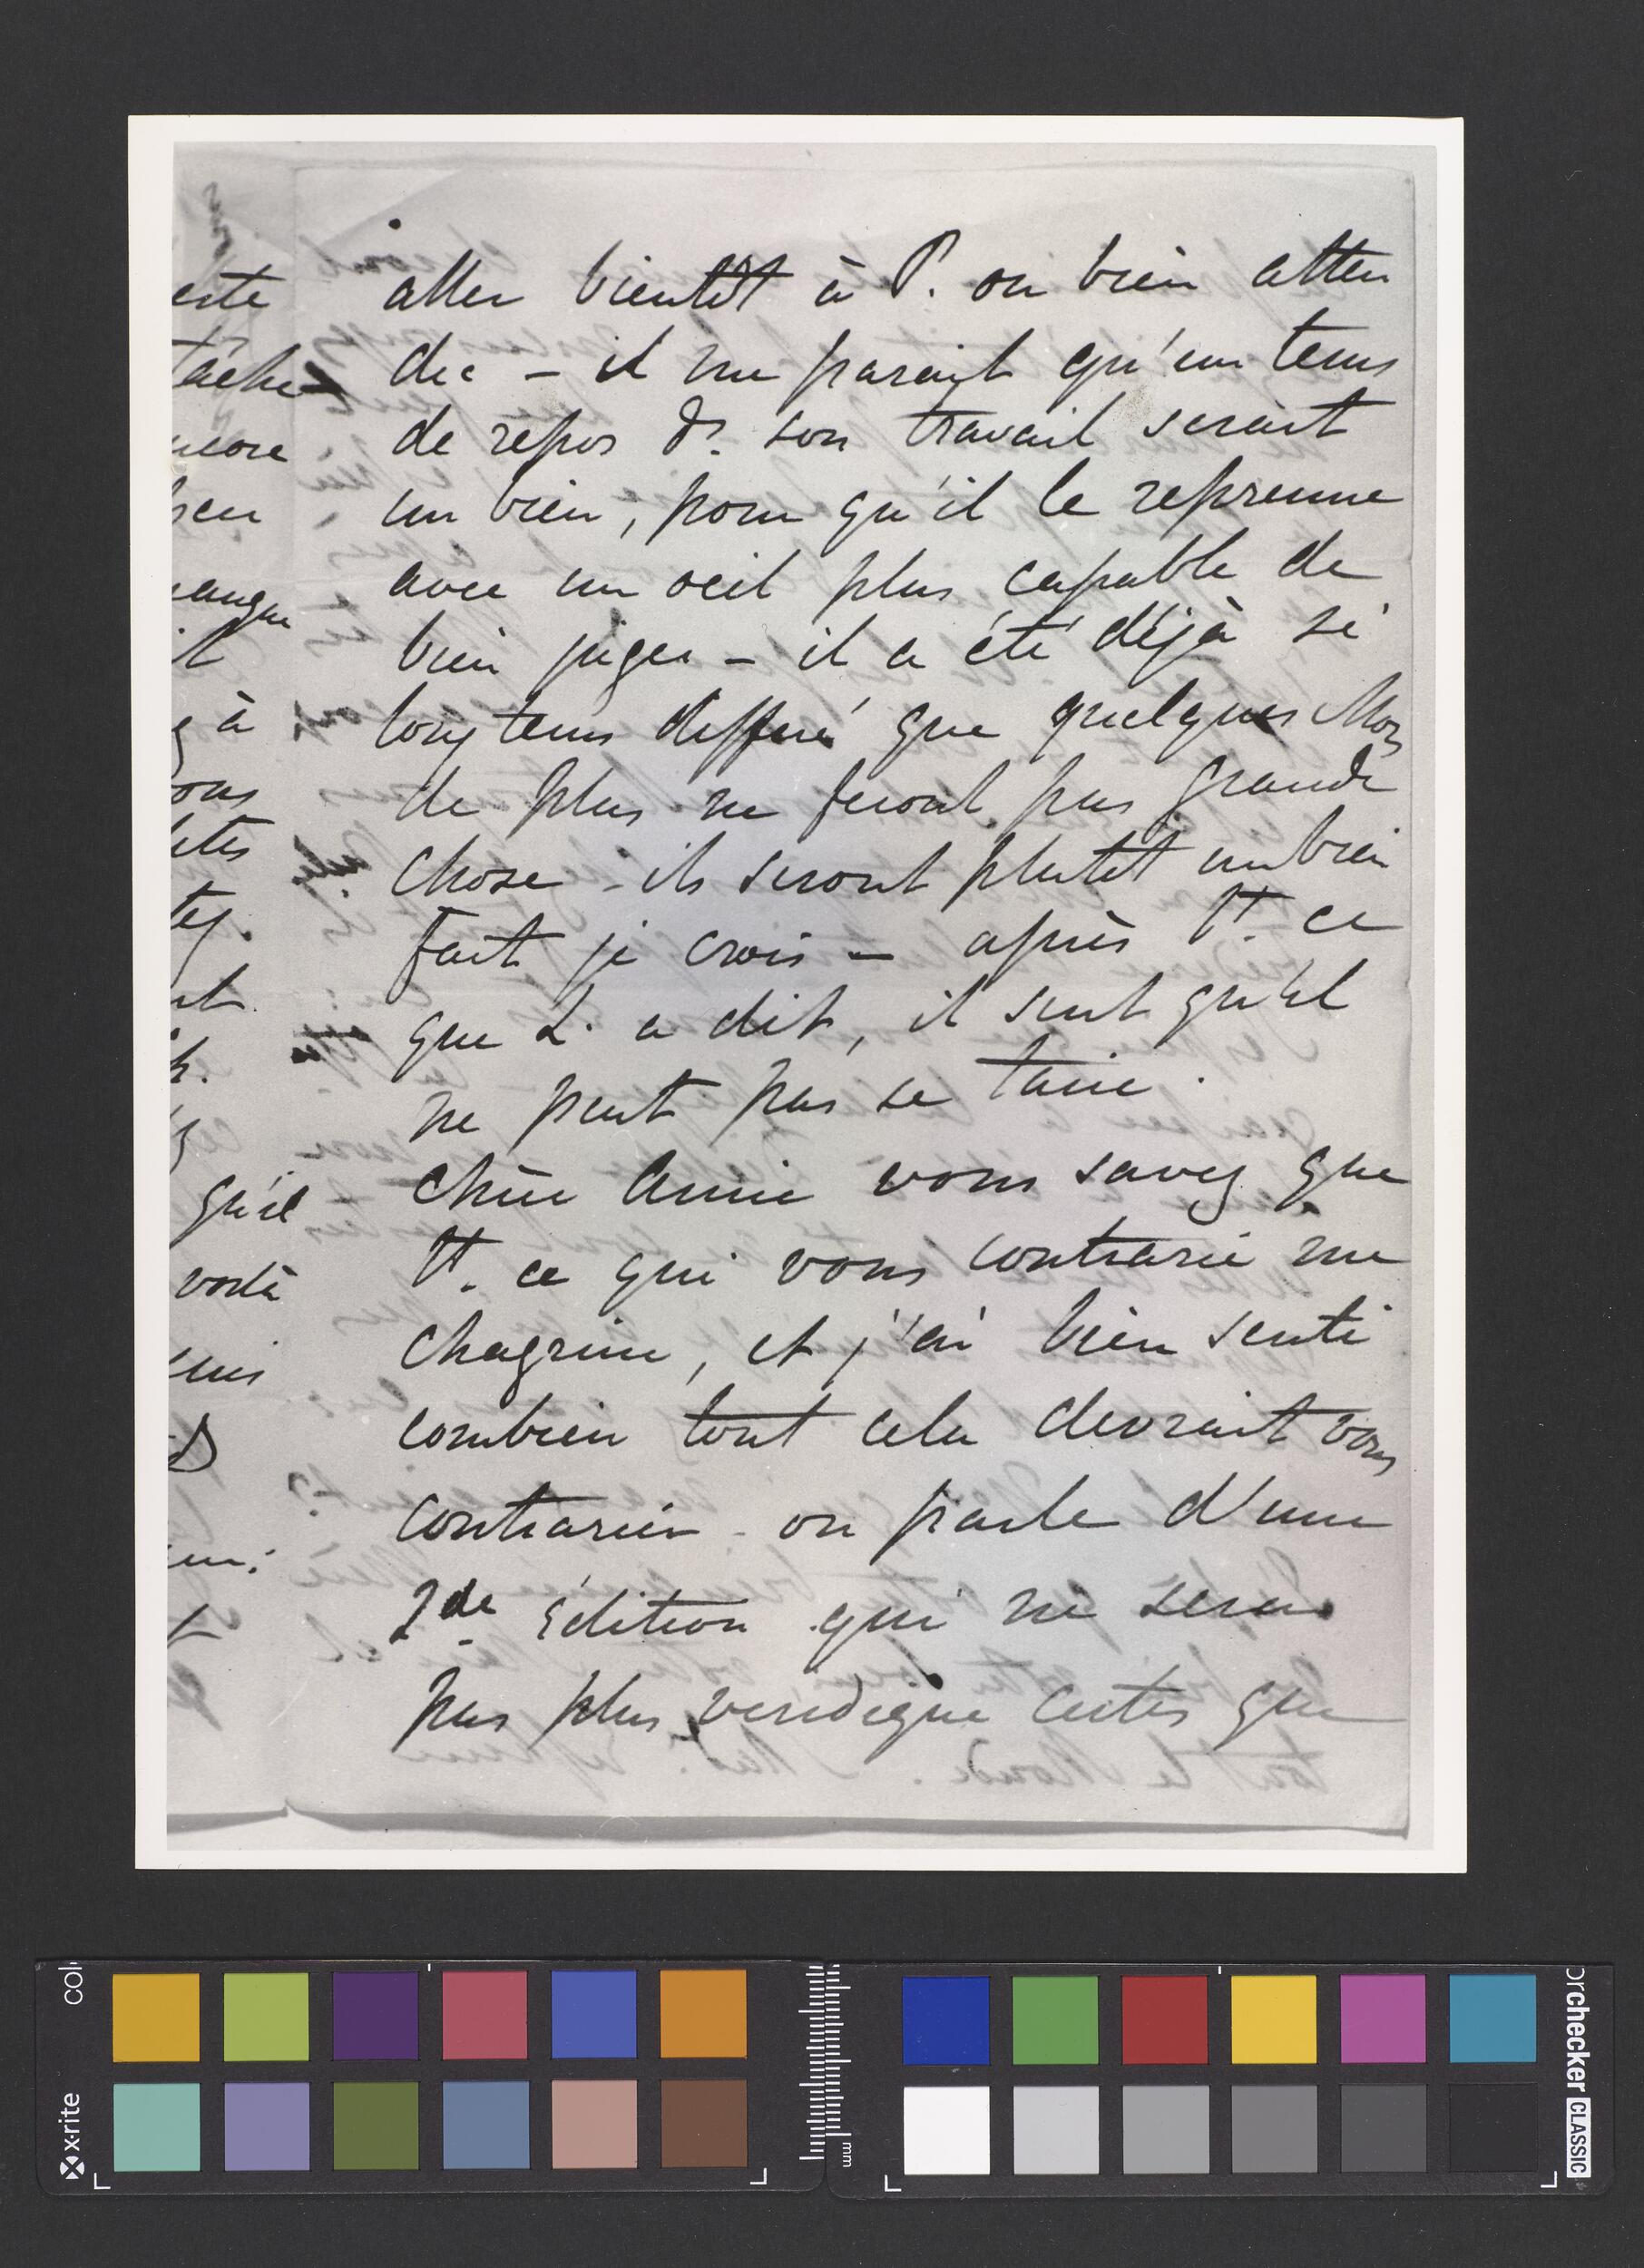 aller bientôt à P. ou bien atten
dre - il me parait qu'un tems
de repos ds. son travail serait
un bien, pour qu'il le reprenne
avec un oeil plus capable de
bien juger - il a été déjà si
longtems differé que quelques Mois
de plus ne feront pas grande
chose - ils seront plutôt un bien
fait je crois - après tt. ce
que L. a dit, il sent qu'il
ne peut pas se taire.
chère Amie vous savez que
tt. ce qui vous contrarie me
chagrine, et j'ai bien senti
combien tout cela devrait vous
contrarier - on parle d'une
2de édition qui ne sera
pas plus veridique certes que
tache
à
qu'il
voilà
x-rite
colorchecker CLASSIC
mm